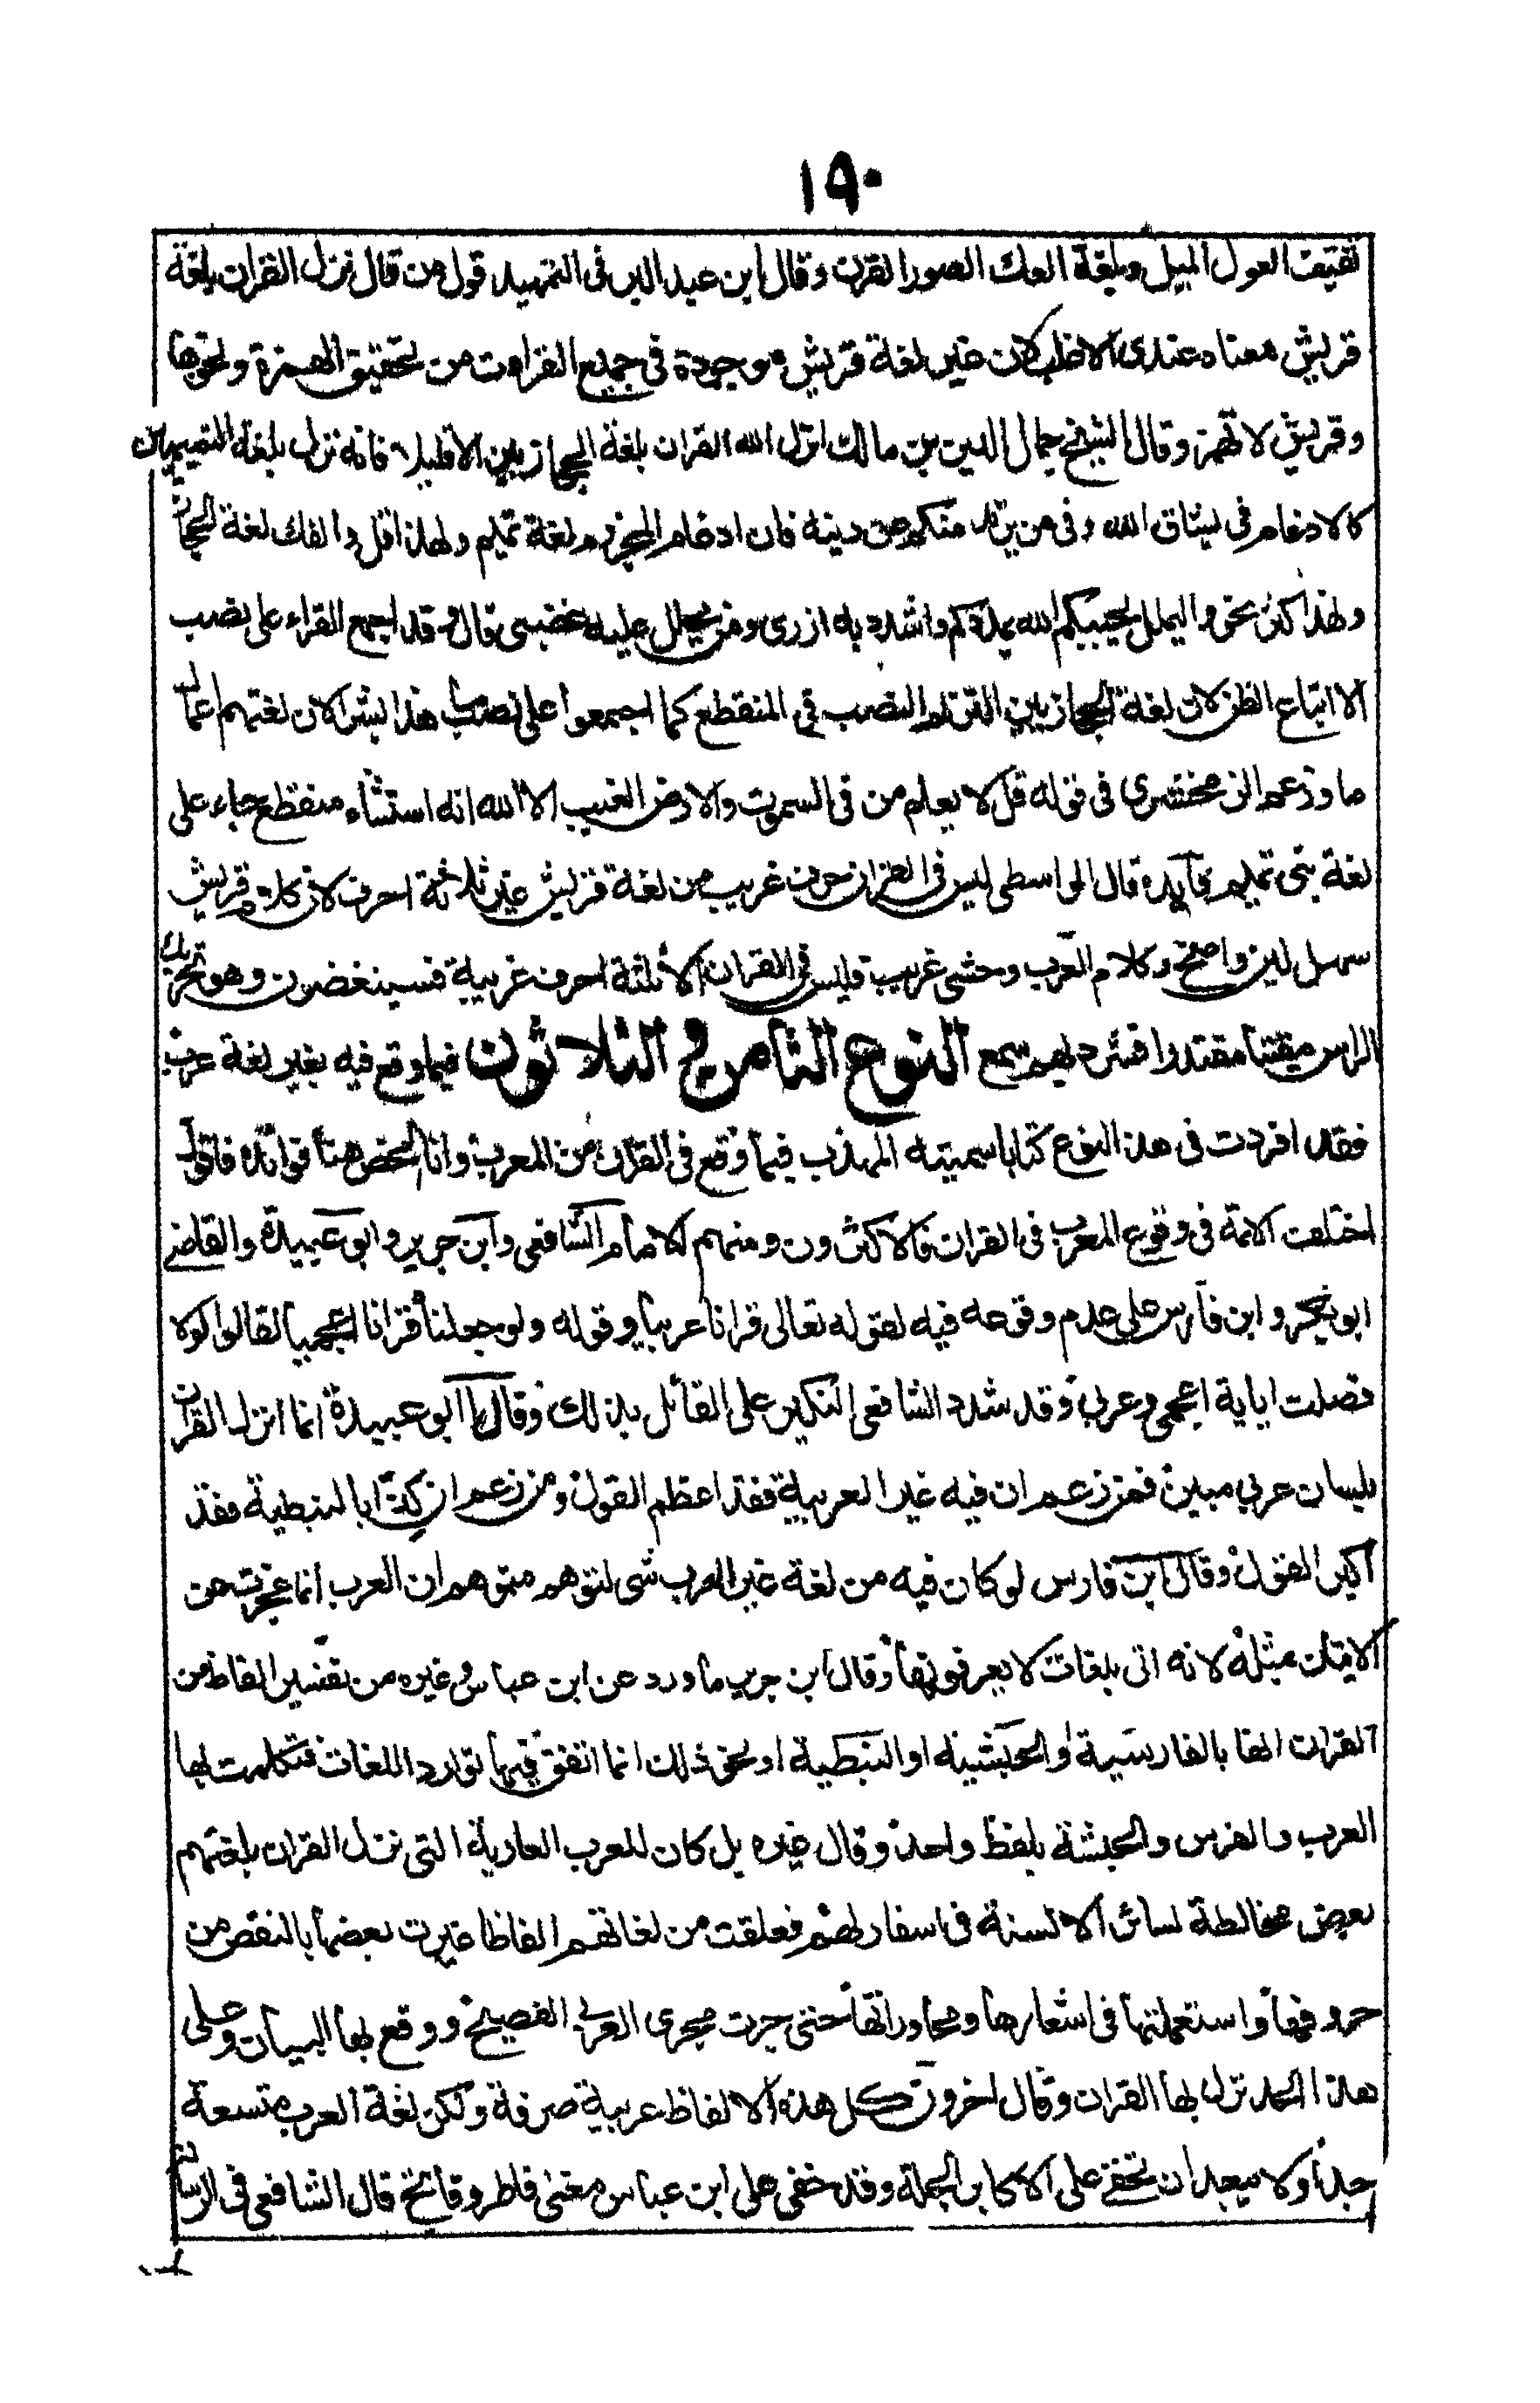 ١٩٠
ثقيف العول الميل وبلغة العك الصور القرن وقال ابن عبد البر فى التمهيد قول من قال نزل القران بلغة
قريش معناه عندى الاغلب لان غير لغة قريش موجودة فى جميع القراءت من تحقيق الهمزة ونحوها
وقريش لا تهمز وقال الشيخ جمال الدين بن مالك انزل الله القران بلغة الحجازيين الا قليلا فانه نزل بلغة التميميين
كالادغام فى يشاق الله وفى من يرتد منكم عن دينه فان ادغام المجزوم لغة تميم ولهذا قل والفك لغة الحجاز
ولهذا كثر نحو واليملل يحببكم الله يمددكم واشدد به ازرى ومن يحلل عليه غضبى قال وقد اجمع القراء على نصب
الا اتباع الظن لان لغة الحجازيين التزام النصب فى المنقطع كما اجمعوا على نصب ما هذا بشرا لان لغتهم اعمال
ما وزعم الزمخشرى فى قوله قل لا يعلم من فى السموت والارض الغيب الا الله انه استثناء منقطع جاء على
لغة بنى تميم فآيدة قال الواسطى ليس فى القران حرف غريب من لغة قريش غير ثلاثة احرف لان كلام قريش
سهل لين واضح وكلام العرب وحشى غريب فليس فى القران الا ثلثة احرف غريبة فسينغضون وهو تحريك
الراس مقيتا مقتدرا فشرد بهم سمع النوع الثامن و الثلاثون فيما وقع فيه بغير لغة عرب
فقد افردت فى هذا النوع كتابا سميته المهذب فيما وقع فى القران من المعرب وانا الخص هنا فوائده فاقول
اختلفت الائمة فى وقوع المعرب فى القران فالاكثرون ومنهم الامام الشافعى وابن جرير وابو عبيدة والقاضى
ابو بكر وابن فارس على عدم وقوعه فيه لقوله تعالى قرانا عربيا وقوله ولو جعلناه قرانا اعجميا لقالوا لولا
فصلت اياته اعجمى وعربى وقد شدد الشافعى النكير على القائل بذلك وقال ابو عبيدة انما انزل القران
بلسان عربي مبين فمن زعم ان فيه غير العربية فقد اعظم القول ومن زعم ان كذّابا بالنبطية فقد
اكبر القول وقال ابن فارس لو كان فيه من لغة غير العرب شى لتوهم متوهم ان العرب انما عجزت عن
الاتيان بمثله لانه اتى بلغات لا يعرفونها وقال ابن جرير ما ورد عن ابن عباس وغيره من تفسير الفاظ من
القران انها بالفارسية او الحبشية او النبطية او نحو ذلك انما اتفق فيها توارد اللغات فتكلمت بها
العرب والفرس والحبشة بلفظ واحد وقال غيره بل كان للعرب العاربة التى نزل القران بلغتهم
بعض مخالطة لسائر الالسنة فى اسفار لهم فعلقت من لغاتهم الفاظا غيرت بعضها بالنقص من
حروفها واستعملتها فى اشعارها ومحاوراتها حتى جرت مجرى العربى الفصيح ووقع بها البيان وعلى
هذا الحد نزل بها القران وقال اخرون كل هذه الالفاظ عربية صرفة ولكن لغة العرب متسعة
جدا ولا يبعد ان تخفى على الاكابر الجملة وقد خفى على ابن عباس معنى فاطر وفاتح قال الشافعى فى الرسالة